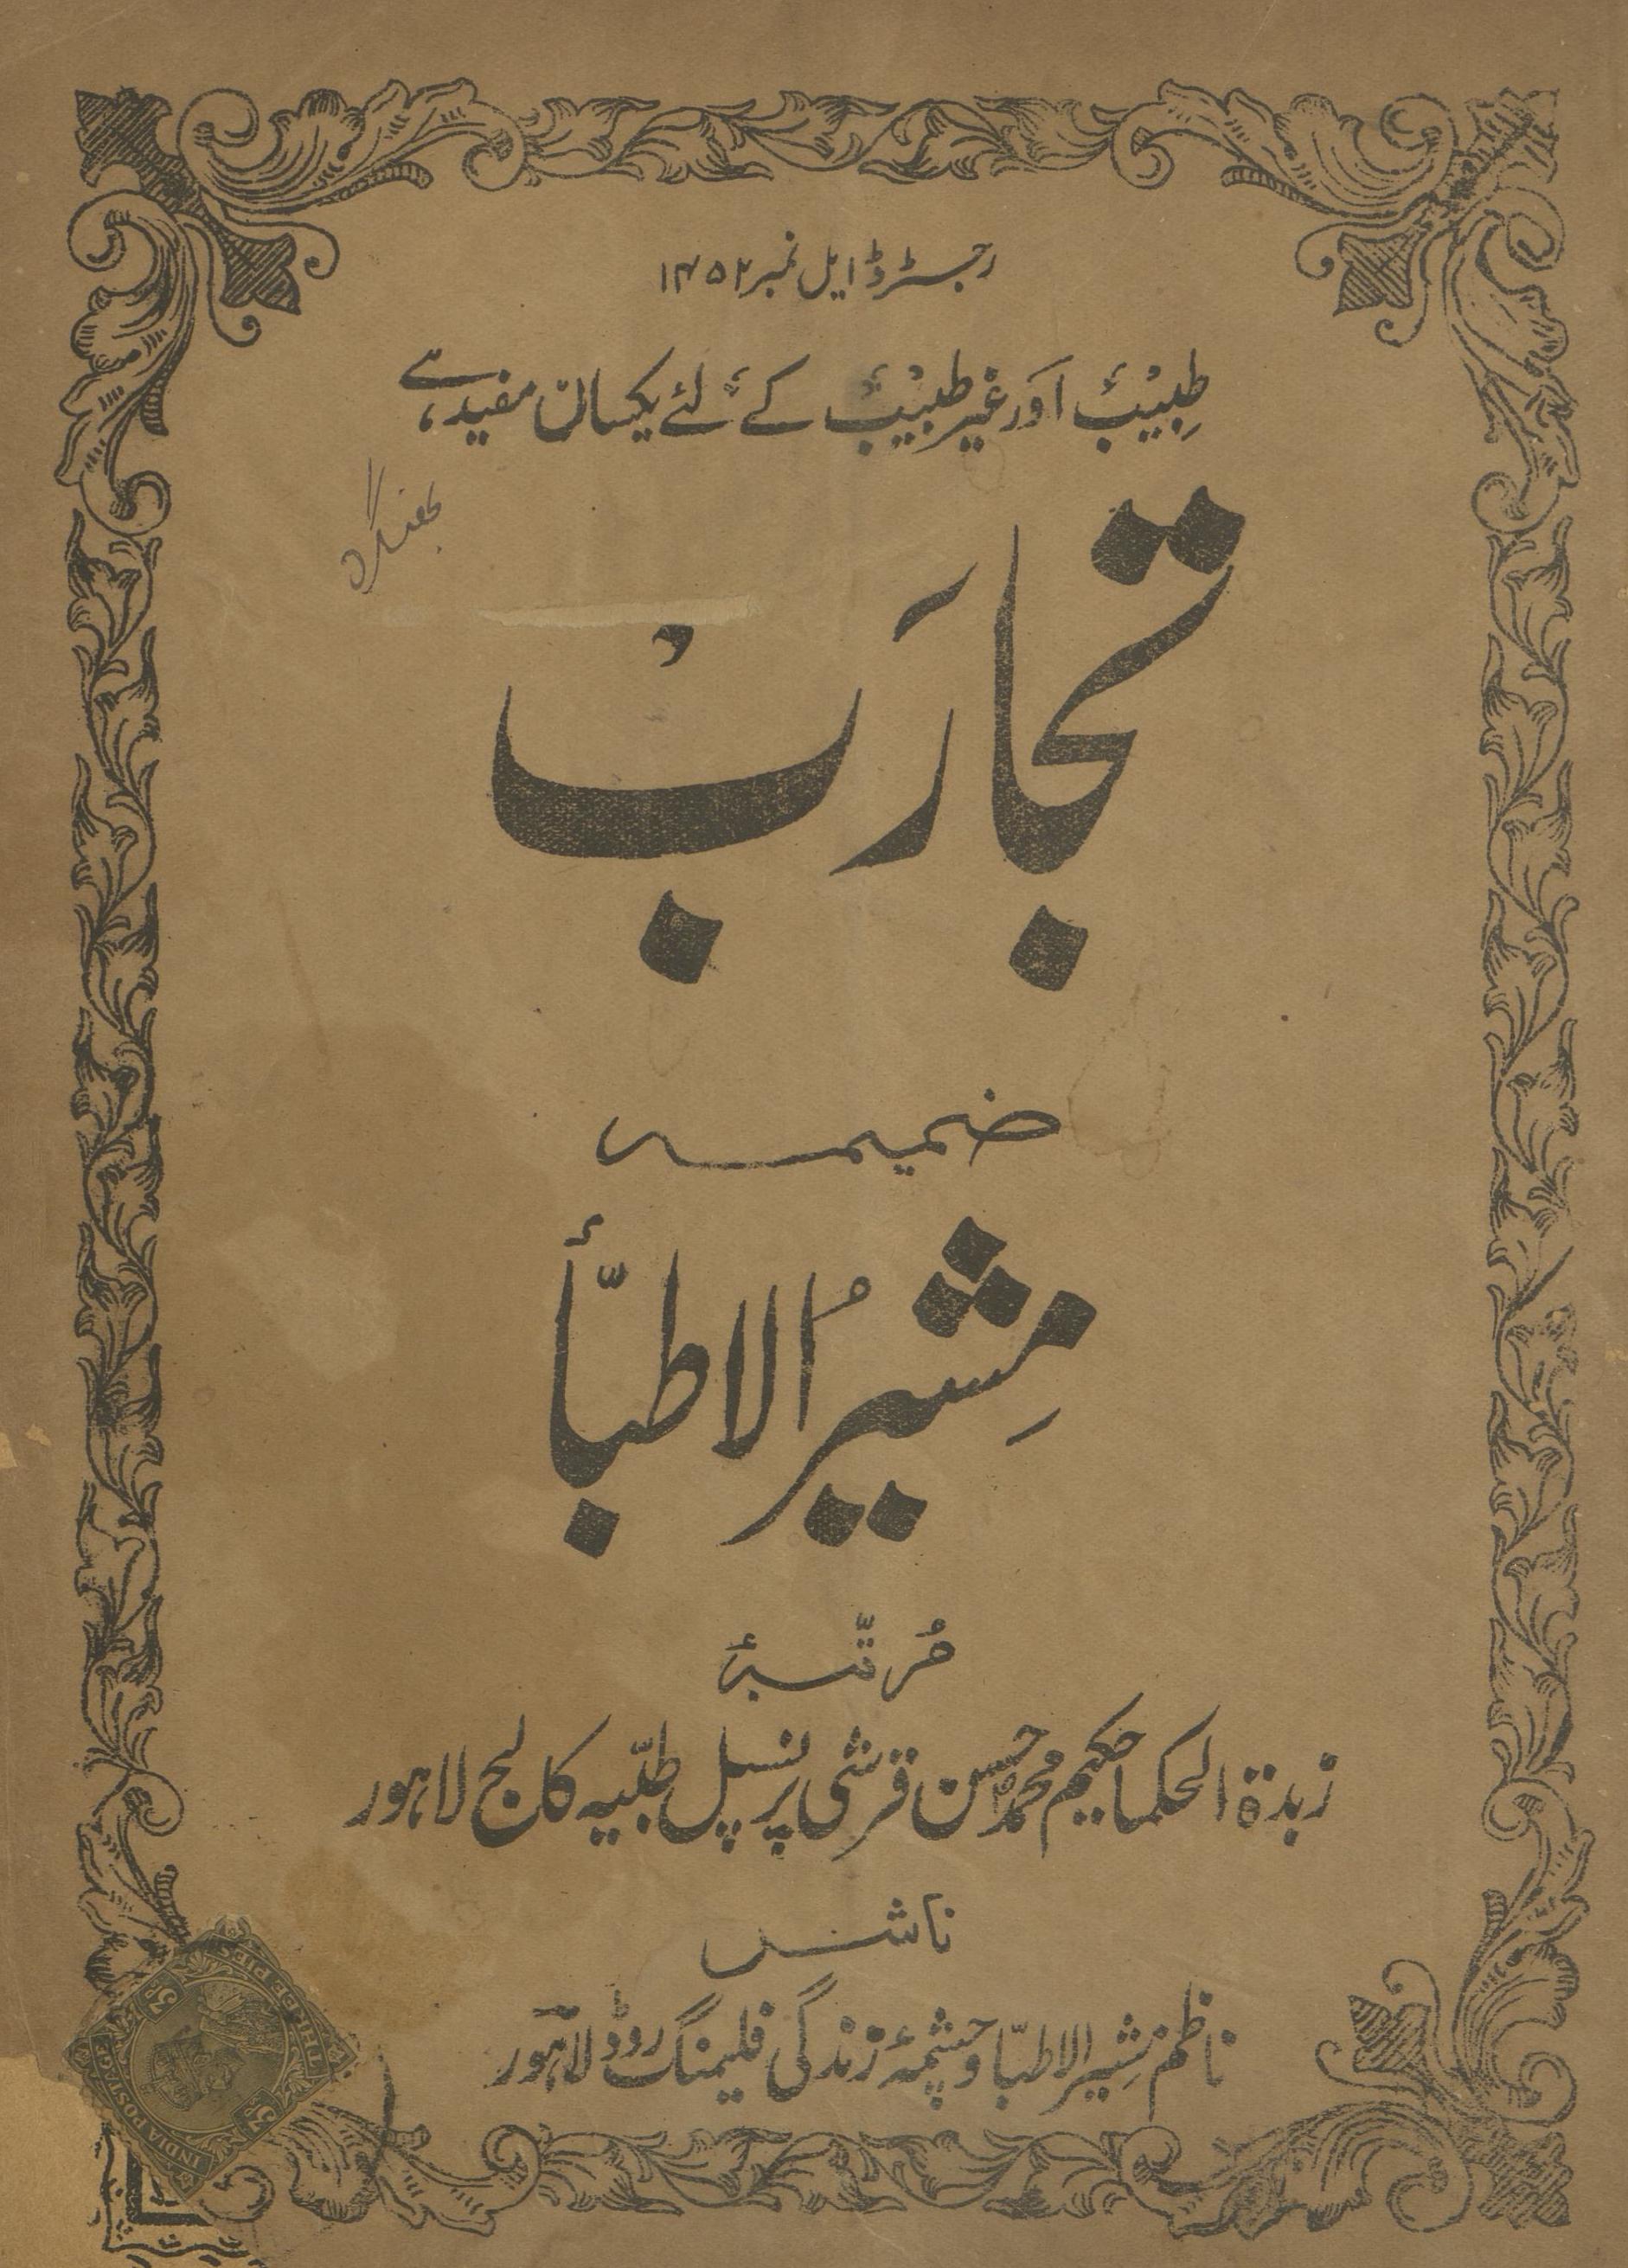 رجسٹرڈ ایل نمبر ۱۴۵۲
طِبیْبْ اَور غیر طبیْبْ کے لئے یکساں مفید ہے
تجارَبْ
ضمیمہ
مُشِیرُ الاطبّأ
مُرتّبہٗ
زبدۃ الحکما حکیم محمد حسن قرشی پرنسپل طبّیہ کالج لاہور
ناشر
ناظم مُشِیر الاطبّا و چشمۂ زندگی فلیمنگ روڈ لاہور
INDIA POSTAGE
THREE PIES
3P
3P